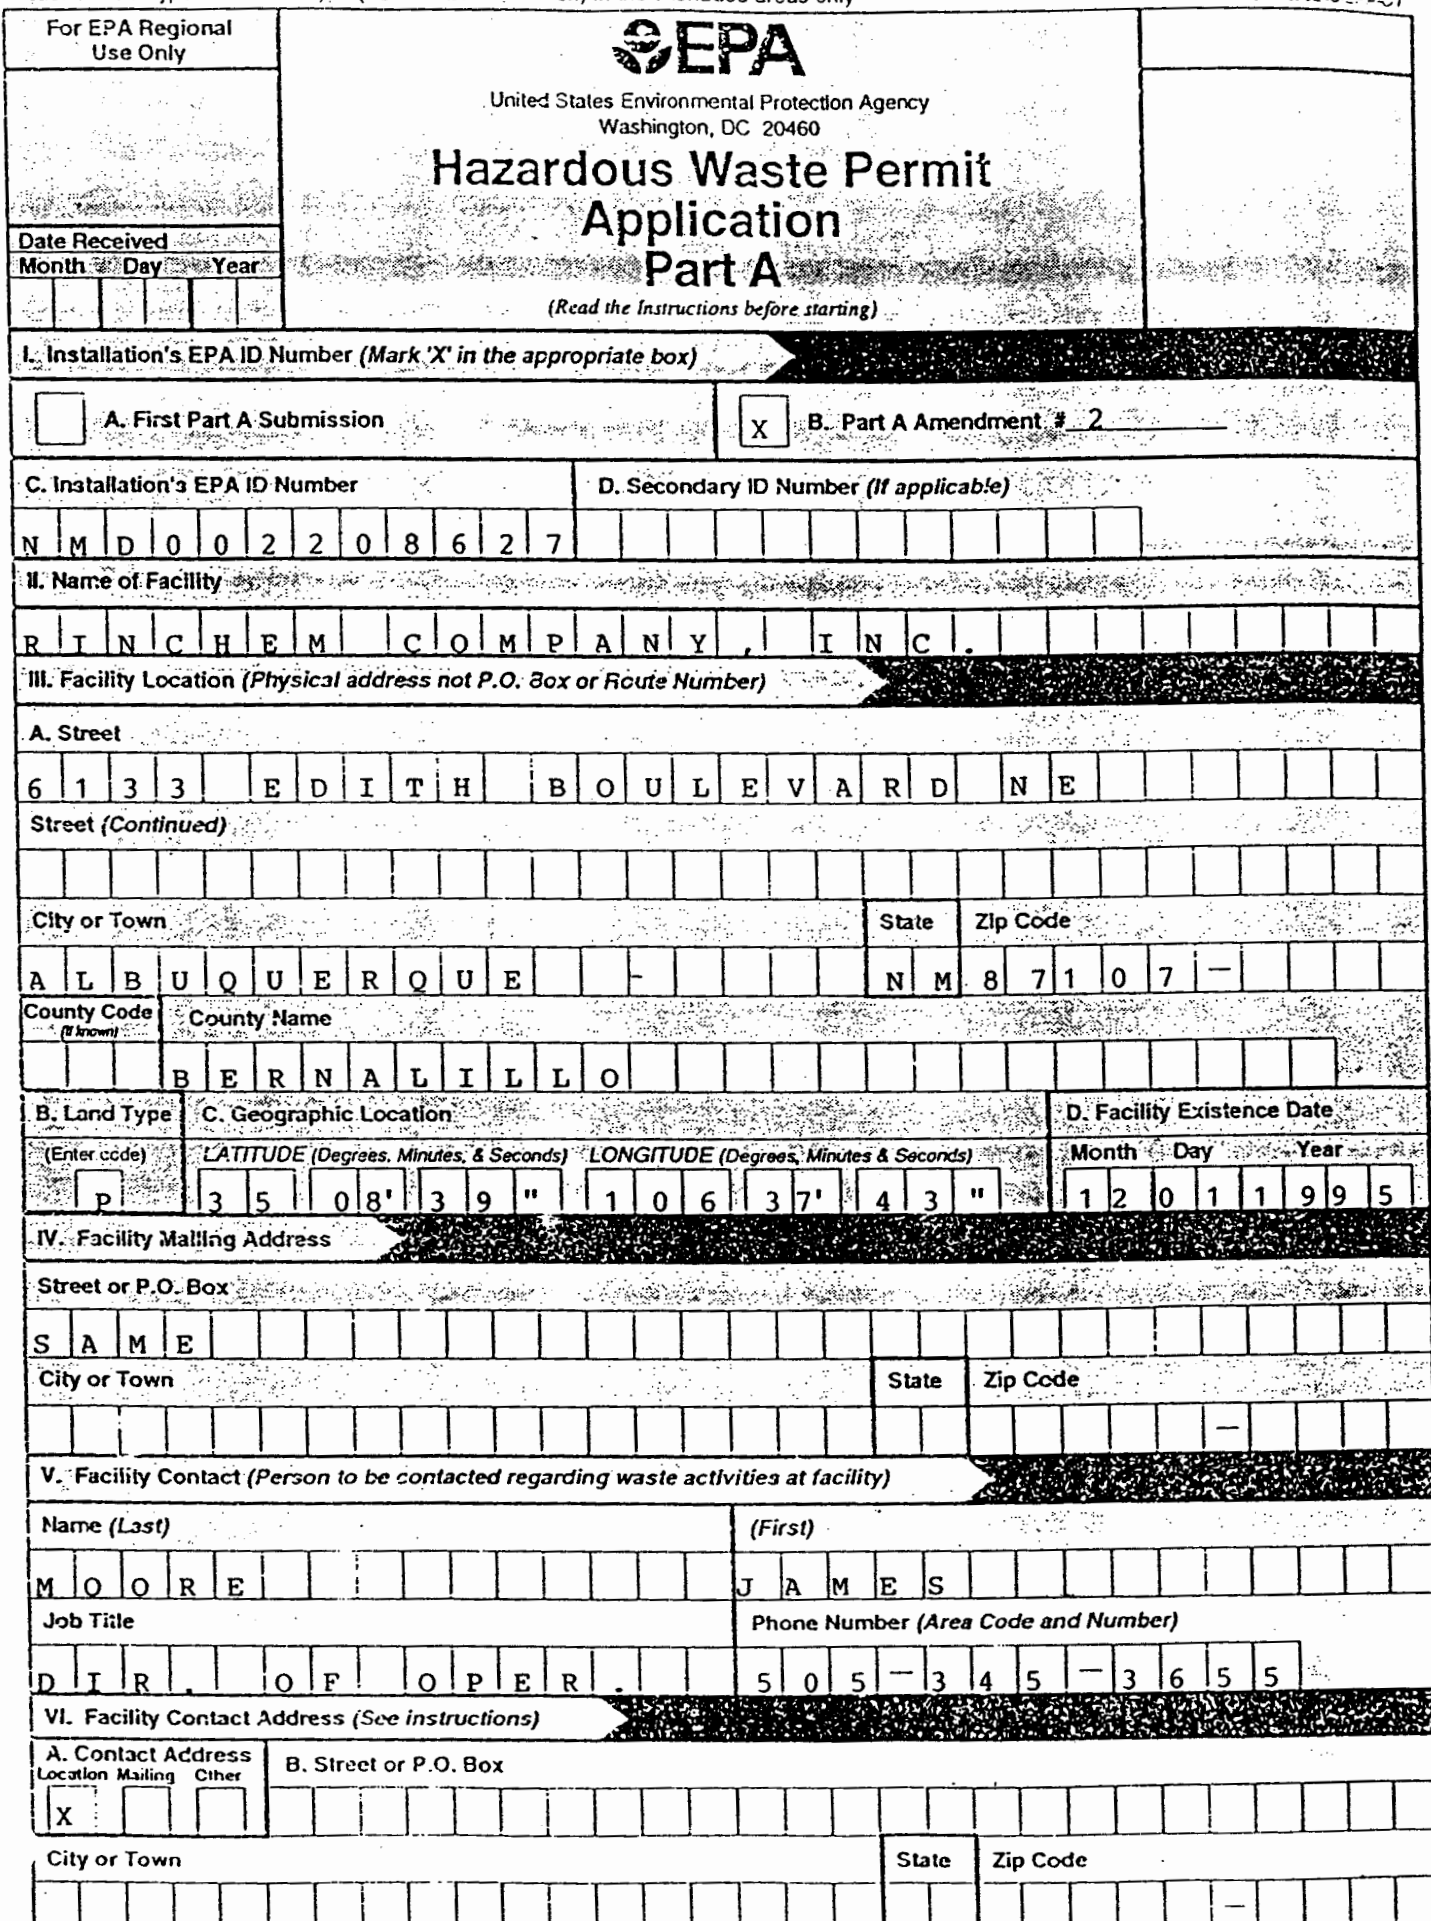 For EPA Regional
Use Only
EPA
United States Environmental Protection Agency
Washington, DC 20460
Hazardous Waste Permit
Application
Part A
(Read the Instructions before starting)
Date Received
Month Day Year
I. Installation's EPA ID Number (Mark 'X' in the appropriate box)
A. First Part A Submission
X B. Part A Amendment # 2
C. Installation's EPA ID Number D. Secondary ID Number (If applicable)
NMD002208627
II. Name of Facility
RINCHEM COMPANY, INC.
III. Facility Location (Physical address not P.O. Box or Route Number)
A. Street
6133 EDITH BOULEVARD NE
Street (Continued)
City or Town State Zip Code
ALBUQUERQUE - NM 87107 —
County Code County Name
(If known)
BERNALILLO
B. Land Type C. Geographic Location D. Facility Existence Date
(Enter code) LATITUDE (Degrees, Minutes, & Seconds) LONGITUDE (Degrees, Minutes & Seconds) Month Day Year
P 35 08' 39" 106 37' 43" 12 01 1995
IV. Facility Mailing Address
Street or P.O. Box
SAME
City or Town State Zip Code
—
V. Facility Contact (Person to be contacted regarding waste activities at facility)
Name (Last) (First)
MOORE JAMES
Job Title Phone Number (Area Code and Number)
DIR. OF OPER. 505—345—3655
VI. Facility Contact Address (See instructions)
A. Contact Address B. Street or P.O. Box
Location Mailing Other
X
City or Town State Zip Code
—